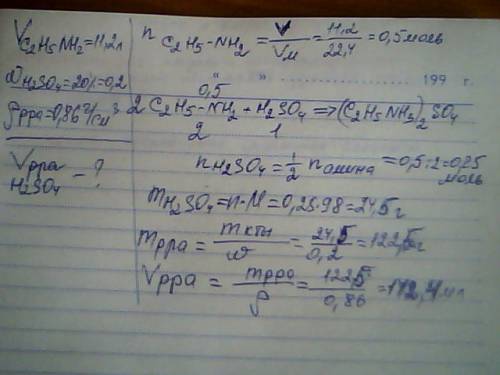 V C₂H₅NH₂ = 11,2л
ω H₂SO₄ = 20% = 0,2
ρ рра = 0,86 г/см³
V рра H₂SO₄ - ?
n C₂H₅-NH₂ = V/Vм = 11,2/22,4 = 0,5 моль
" " 199 г.
0,5
2 C₂H₅-NH₂ + H₂SO₄ => (C₂H₅NH₃)₂SO₄
2 1
n H₂SO₄ = 1/2 n амина = 0,5:2 = 0,25 моль
m H₂SO₄ = n·M = 0,25·98 = 24,5г
m рра = m к-ты/ω = 24,5/0,2 = 122,5г
V рра = m рра/ρ = 122,5/0,86 = 142,4 мл